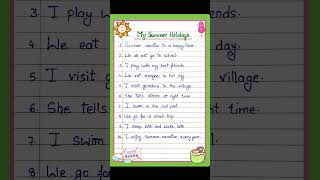 My Summer Holidays
1. Summer vacation is a happy time.
2. We do not go to school.
3. I play with my best friends.
4. We eat icecream in hot day.
5. I visit grandma in the village.
6. She tells stories at night time.
7. I swim in the cool pool.
8. We go for a small trip.
9. I sleep late and wake late.
10. I enjoy summer vacation every year.
3. I play
friends.
4. We eat
day.
5. I visit
village.
6. She tells
time.
7. I swim
8. We go fo